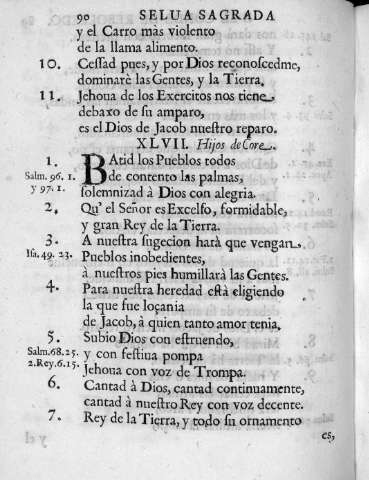 90 SELUA SAGRADA
y el Carro màs violento
de la llama alimento.
10. Ceſſad pues, y por Dios reconoſcedme,
dominarè las Gentes, y la Tierra.
11. Jehoua de los Exercitos nos tiene
debaxo de ſu amparo,
es el Dios de Jacob nueſtro reparo.
XLVII. Hijos de Core.
1. BAtid los Pueblos todos
Salm. 96. 1. de contento las palmas,
y 97. 1. ſolemnizad à Dios con alegria.
2. Qu' el Señor es Excelſo, formidable,
y gran Rey de la Tierra.
3. A nueſtra ſugecion harà que vengan
Iſa. 49. 23. Pueblos inobedientes,
à nueſtros pies humillarà las Gentes.
4. Para nueſtra heredad eſtà eligiendo
la que fue loçania
de Jacob, à quien tanto amor tenia.
5. Subio Dios con eſtruendo,
Salm. 68. 25. y con feſtiua pompa
2. Rey. 6. 15. Jehoua con voz de Trompa.
6. Cantad à Dios, cantad continuamente,
cantad à nueſtro Rey con voz decente.
7. Rey de la Tierra, y todo ſu ornamento
es,